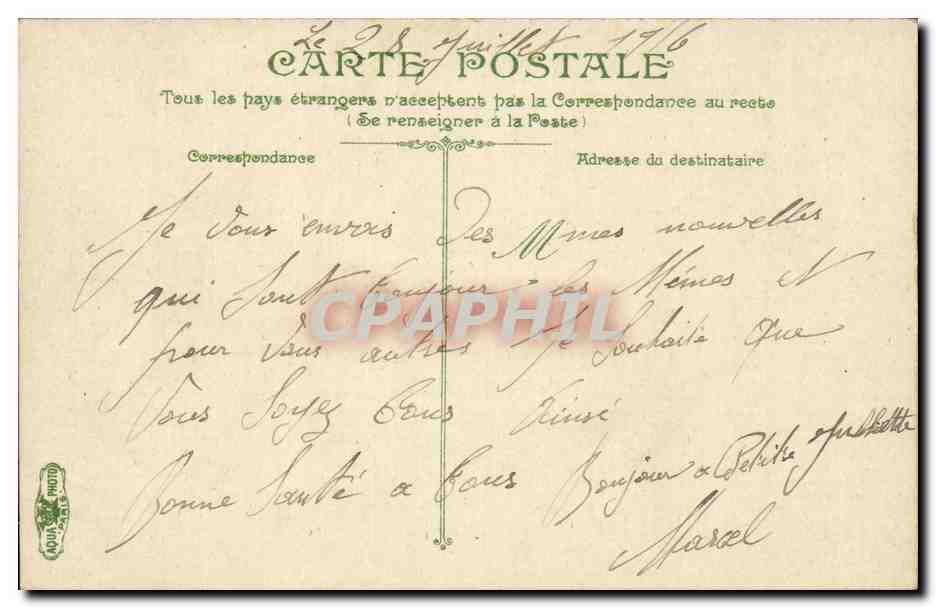 Le 28 Juillet 1916
CARTE POSTALE
Tous les pays étrangers n'acceptent pas la Correspondance au recto
(Se renseigner à la Poste)
Correspondance
Adresse du destinataire
Je vous envois des Mmes nouvelles
qui sont toujour les Mêmes et
pour vous autres Je souhaite que
vous soyez tous
Bonne Santé a tous Bonjour a Petite Juliette
Marcel
AQUA PHOTO
PARIS
CPAPHIL